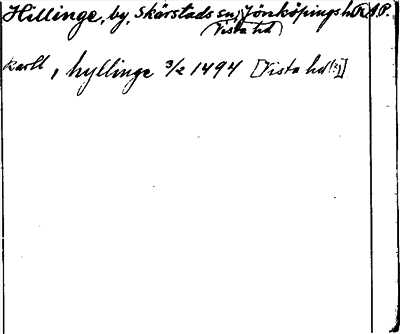 Hillinge, by, Skärstads sn, Jönköpings l. R.A.P.
Vista hd
Karll, hyllinge 3/2 1494 [Vista hd!]